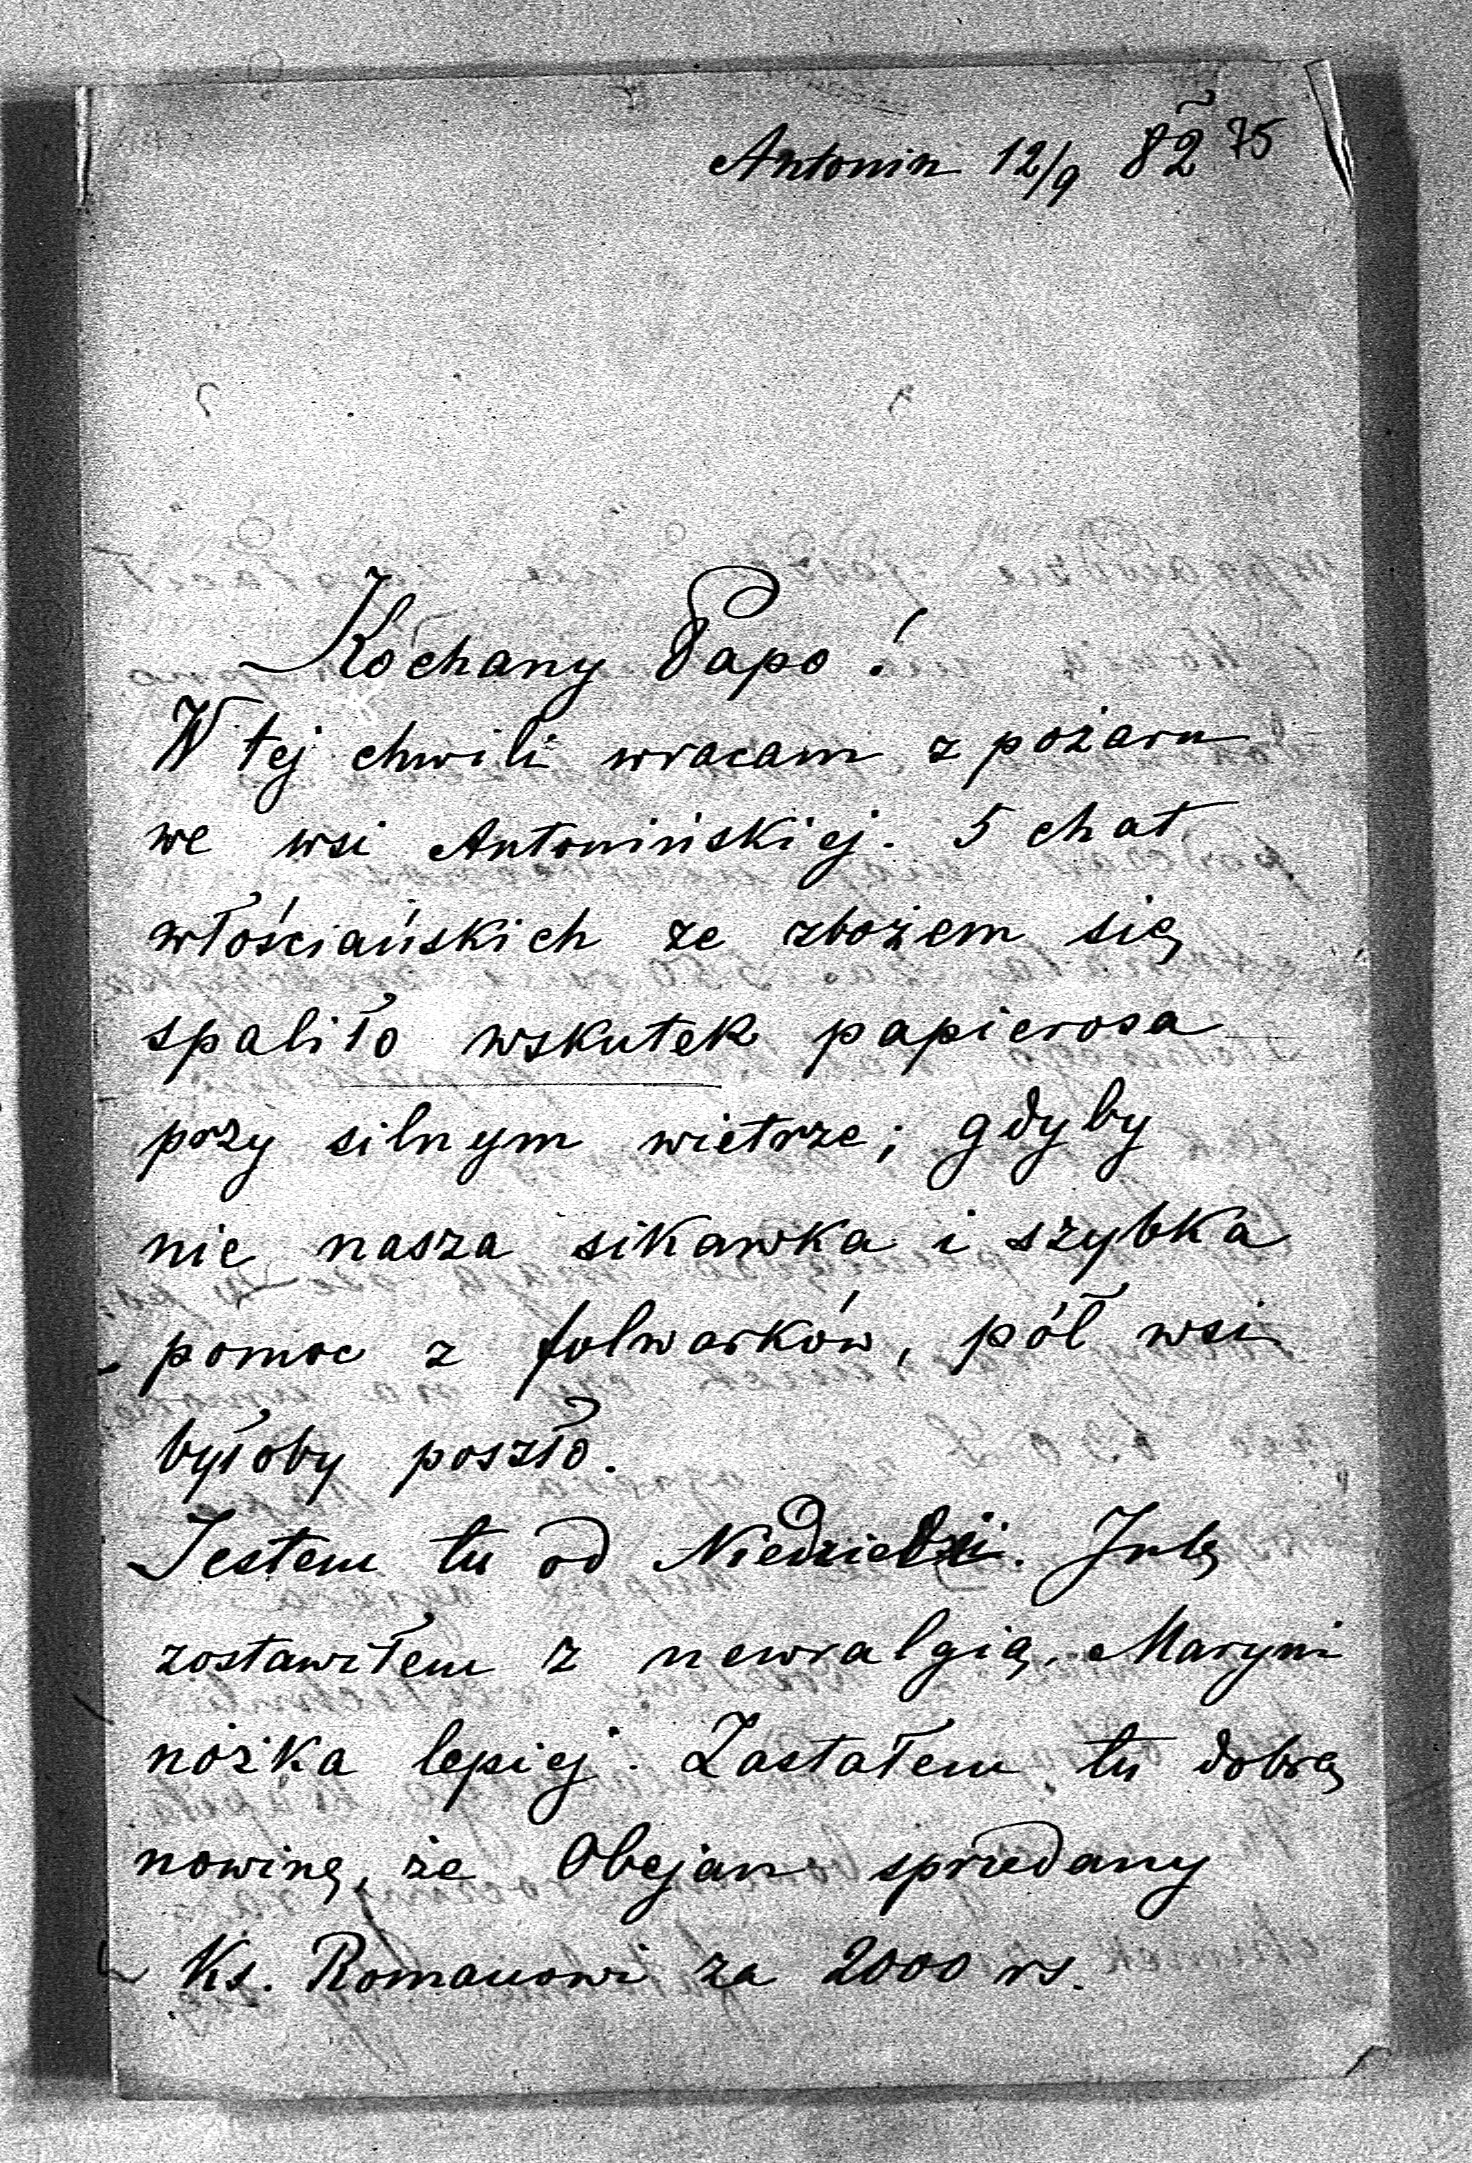 Antonin 12/9 82 75
Kochany Papo!
W tej chwili wracam z pożaru
we wsi Antonińskiej. 5 chat
włościańskich ze zbożem się
spaliło wskutek papierosa
przy silnym wietrze; gdyby
nie nasza sikawka i szybka
pomoc z folwarków, pół wsi
byłoby poszło.
Jestem tu od Niedzieli. Julę
zostawiłem z newralgią, Maryni
nóżka lepiej. Zastałem tu dobrą
nowinę, że Obejan sprzedany
Ks. Romanowi za 2000 rs.